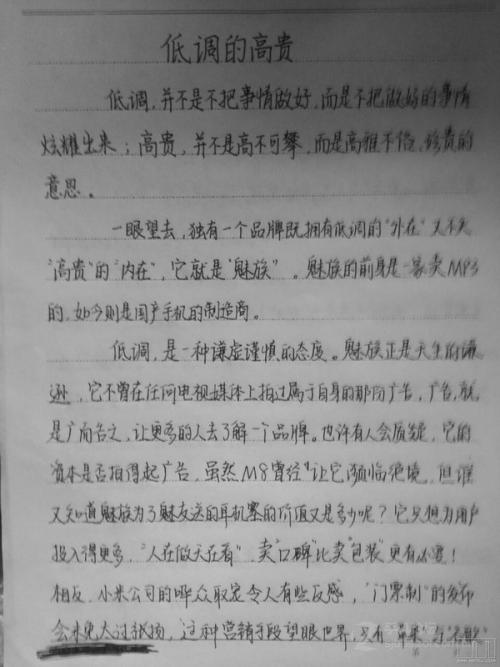 低调的高贵
低调，并不是不把事情做好，而是不把做好的事情
炫耀出来；高贵，并不是高不可攀，而是高雅不俗，珍贵的
意思。
一眼望去，独有一个品牌既拥有低调的“外在”又不失
“高贵”的“内在”，它就是“魅族”。魅族的前身是一家卖MP3
的，如今则是国产手机的制造商。
低调，是一种谦虚谨慎的态度。魅族正是天生的谦
逊，它不曾在任何电视媒体上拍过属于自身的那份广告，广告，就
是广而告之，让更多的人去了解一个品牌。也许有人会质疑，它的
资本是否拍得起广告，虽然M8曾经让它濒临绝境，但谁
又知道魅族为了魅友送的耳机塞的价值又是多少呢？它只想为用户
投入得更多，“人在做天在看”，卖“口碑”比卖“包装”更有必要！
相反，小米公司的哗众取宠令人有些反感，“门票制”的发布
会未免太过张扬，这种营销手段望眼世界，只有“苹果”与